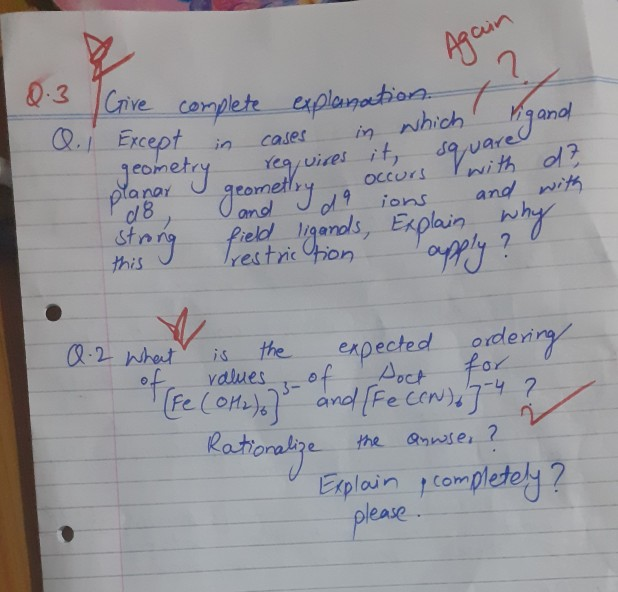 Again
?
Q.3 Give complete explanation.
Q.1 Except in cases in which ligand
geometry requires it, square
planar geometry occurs with d7,
d8, and d9 ions and with
strong field ligands, Explain why
this restriction apply?
Q.2 What is the expected ordering
of values of Δoct for
[Fe(OH2)6]3- and [Fe(CN)6]-4 ?
Rationalize the anwser ?
Explain , completely?
please.